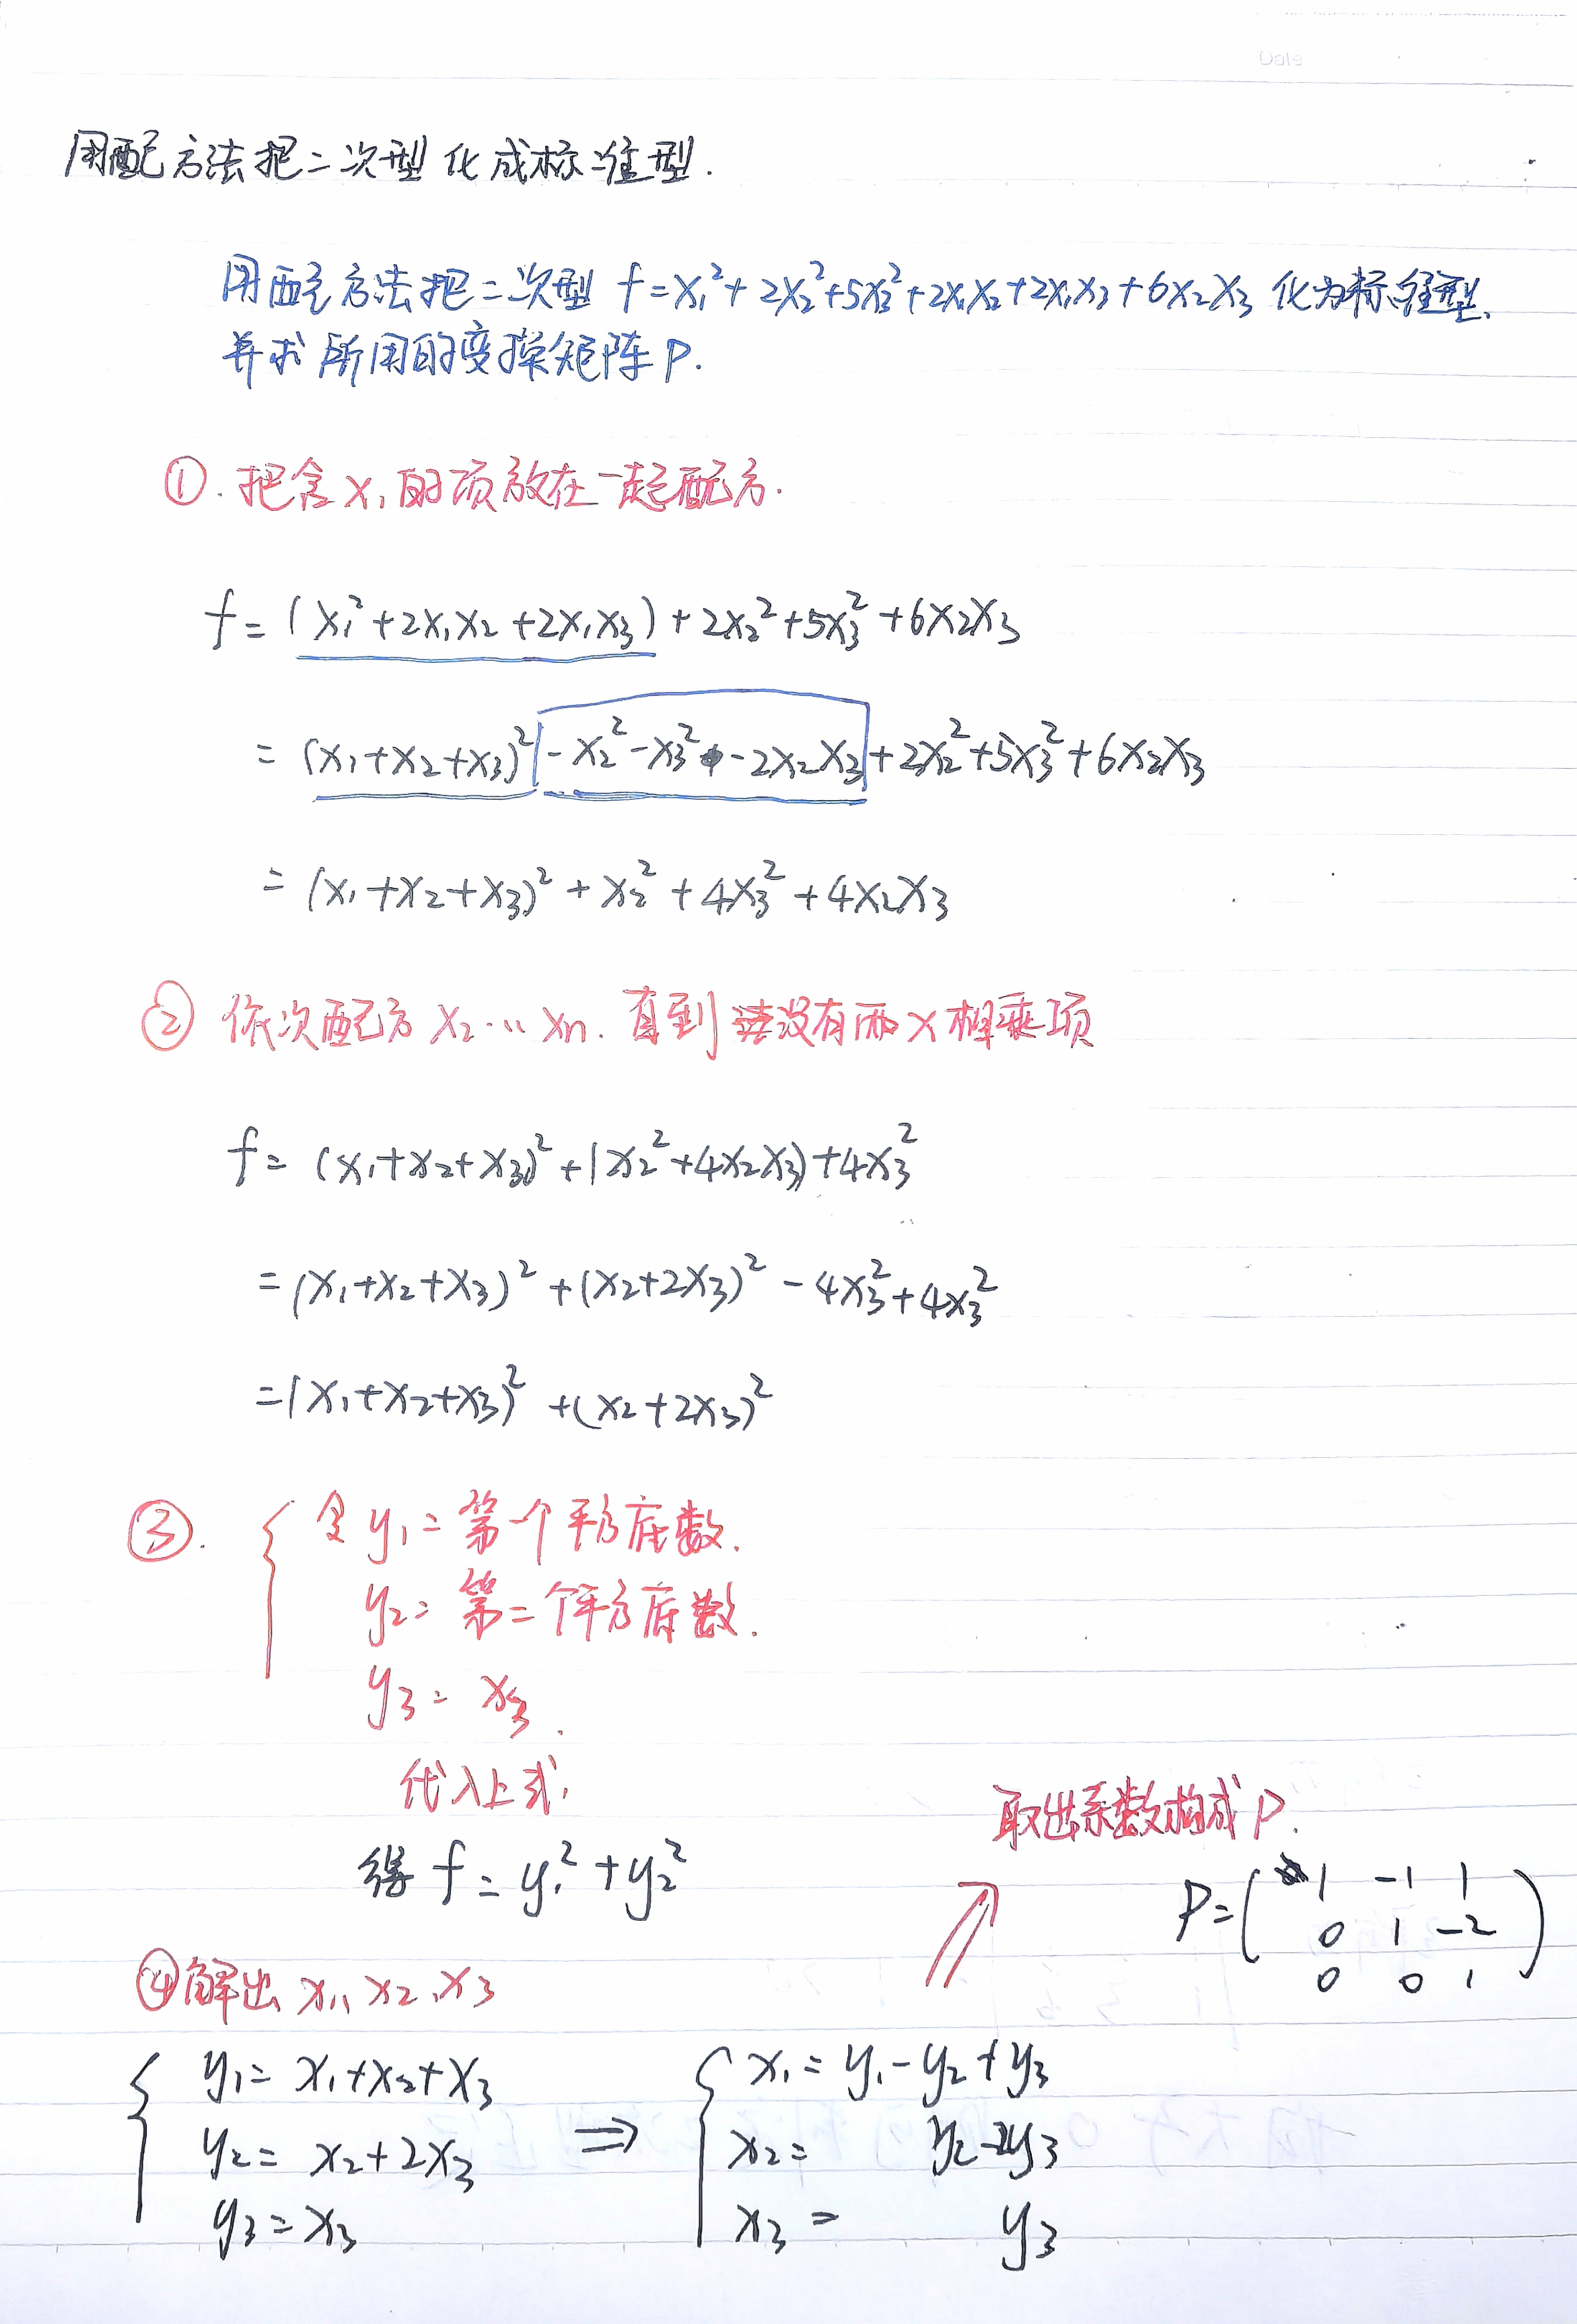 Date
用配方法把二次型化成标准型.
用配方法把二次型 f=x₁²+2x₂²+5x₃²+2x₁x₂+2x₁x₃+6x₂x₃ 化为标准型.
并求所用的变换矩阵P.
①.把含x₁的项放在一起配方.
f=(x₁²+2x₁x₂+2x₁x₃)+2x₂²+5x₃²+6x₂x₃
=(x₁+x₂+x₃)²-x₂²-x₃²-2x₂x₃+2x₂²+5x₃²+6x₂x₃
=(x₁+x₂+x₃)²+x₂²+4x₃²+4x₂x₃
② 依次配方x₂…xn.直到没有两x相乘项
f=(x₁+x₂+x₃)²+(x₂²+4x₂x₃)+4x₃²
=(x₁+x₂+x₃)²+(x₂+2x₃)²-4x₃²+4x₃²
=(x₁+x₂+x₃)²+(x₂+2x₃)²
③. { 令y₁=第一个平方底数.
y₂=第二个平方底数.
y₃=x₃.
代入上式,
得 f=y₁²+y₂²
取出系数构成P.
P=( 1 -1 1
0 1 -2
0 0 1 )
④解出x₁,x₂,x₃
{ y₁=x₁+x₂+x₃
y₂=x₂+2x₃
y₃=x₃
⇒ { x₁=y₁-y₂+y₃
x₂= y₂-2y₃
x₃= y₃